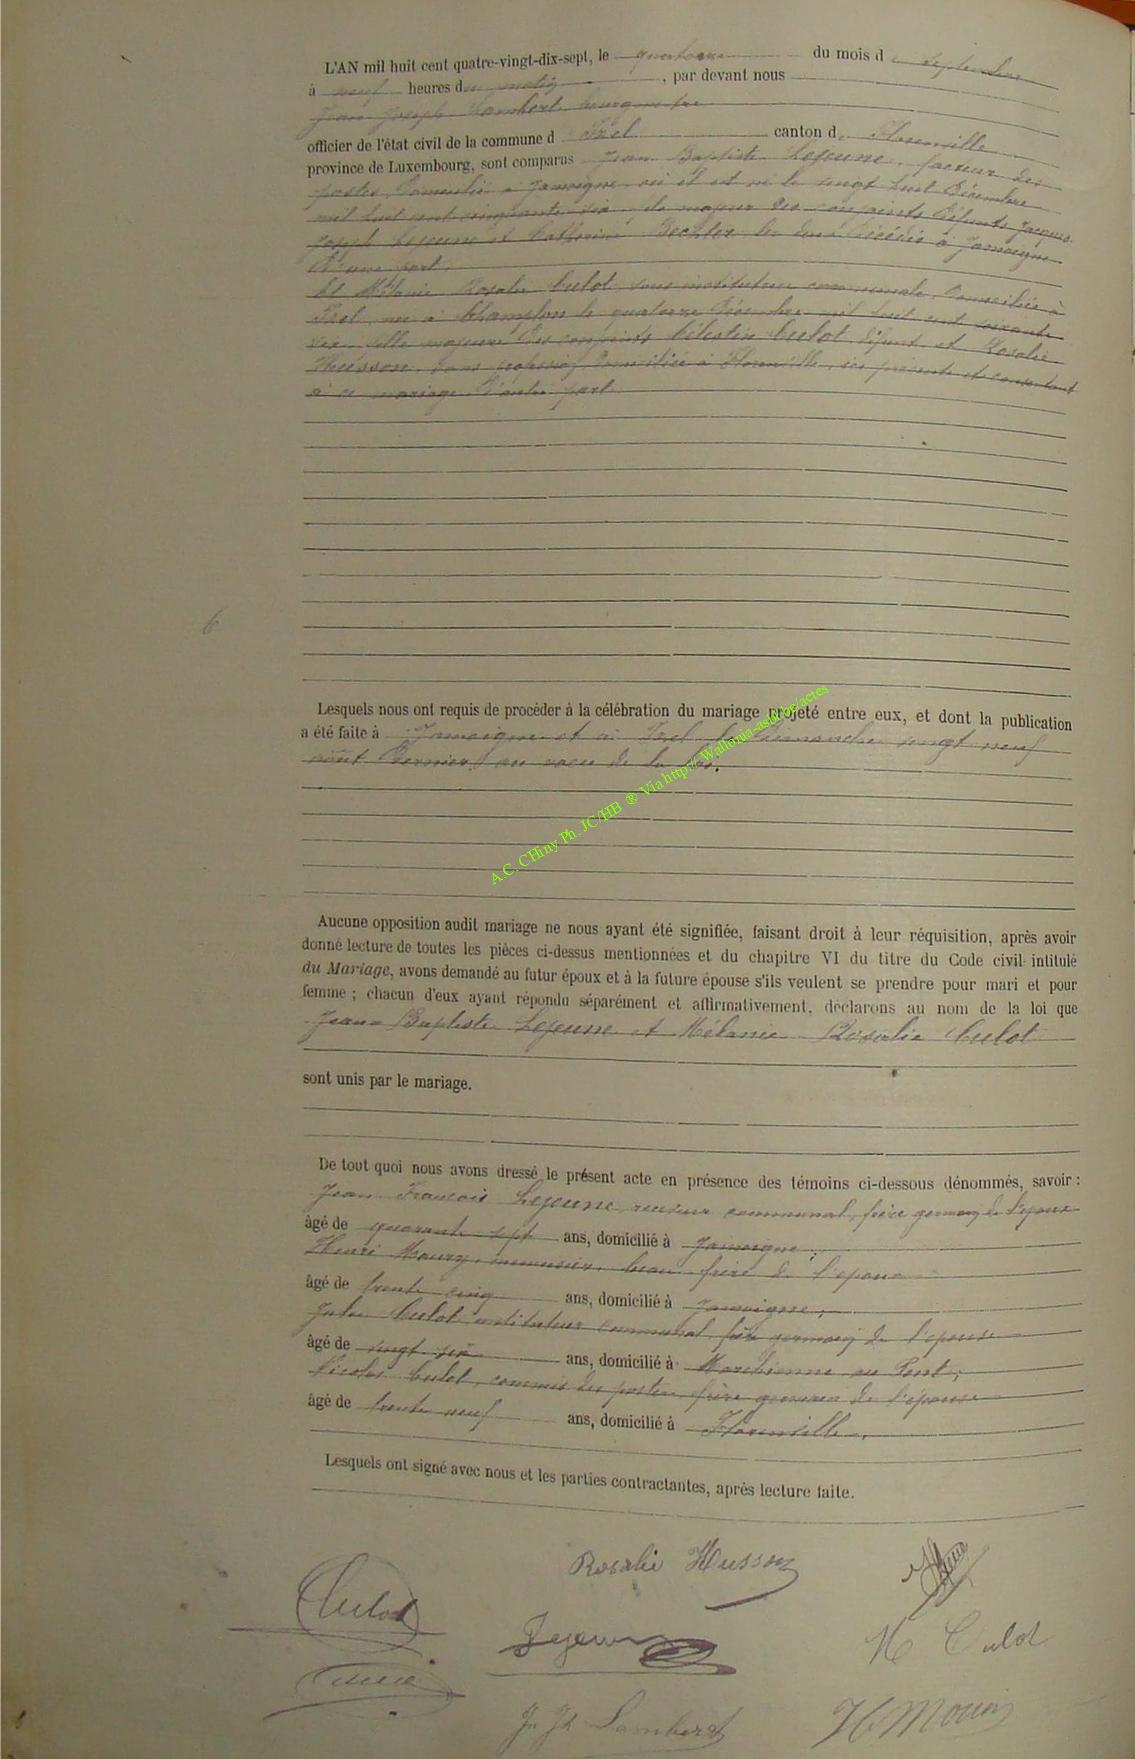 L'AN mil huit cent quatre-vingt-dix-sept, le quatorze du mois de septembre
à neuf heures du matin, par devant nous
Jean Joseph Lambert bourgmestre
officier de l'état civil de la commune d Izel canton de Florenville
province de Luxembourg, sont comparus Jean Baptiste Lejeune, facteur des
postes, domicilié à Jamoigne, où il est né le vingt huit Décembre
mil huit cent cinquante six, fils majeur des conjoints défunts Jacques
Joseph Lejeune et Catherine Bechler les deux décédés à Jamoigne
D'une part.
Et Mélanie Rosalie Culot, sous institutrice communale, domiciliée à
Izel, née à Champlon le quatorze Décembre mil huit cent soixante
six, fille majeure des conjoints Célestin Culot, défunt, et Rosalie
Husson, sans profession, domiciliée à Florenville, ici présente et consentant
à ce mariage D'autre part.
6
Lesquels nous ont requis de procéder à la célébration du mariage projeté entre eux, et dont la publication
a été faite à Jamoigne et à Izel le Dimanche vingt neuf
août dernier, au vœu de la loi.
A.C. CHiny Ph. JC/HB ® Via http:// Wallonia-asbl.be/actes
Aucune opposition audit mariage ne nous ayant été signifiée, faisant droit à leur réquisition, après avoir
donné lecture de toutes les pièces ci-dessus mentionnées et du chapitre VI du titre du Code civil intitulé
du Mariage, avons demandé au futur époux et à la future épouse s'ils veulent se prendre pour mari et pour
femme ; chacun d'eux ayant répondu séparément et affirmativement, déclarons au nom de la loi que
Jean Baptiste Lejeune et Mélanie Rosalie Culot
sont unis par le mariage.
De tout quoi nous avons dressé le présent acte en présence des témoins ci-dessous dénommés, savoir :
Jean François Lejeune, receveur communal, frère germain de l'époux
âgé de quarante sept ans, domicilié à Jamoigne ;
Henri Maury, menuisier, beau frère de l'époux
âgé de trente cinq ans, domicilié à Jamoigne ;
Jules Culot, instituteur communal, frère germain de l'épouse
âgé de vingt six ans, domicilié à Marchienne au Pont ;
Nicolas Culot, commis des postes, frère germain de l'épouse
âgé de trente neuf ans, domicilié à Florenville.
Lesquels ont signé avec nous et les parties contractantes, après lecture faite.
Rosalie Husson
Culot
Lejeune
M Culot
J. Jh Lambert